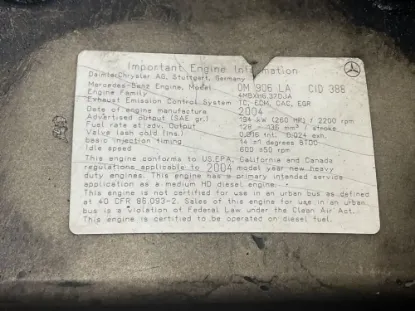 Important Engine Information
DaimlerChrysler AG, Stuttgart, Germany
Mercedes-Benz Engine, Model OM 906 LA CID 388
Engine Family
Exhaust Emission Control System TC, ECM, CAC, EGR
Date of Manufacture 2004
Advertised output (SAE gr.) 194 kW (260 HP) / 2200 rpm
Fuel rate at adv. Output mm³ / stroke
Valve lash cold (ins.) 0.016 int. 0.024 exh.
basic injection timing degrees BTDC
Idle speed 600 ±50 rpm
This engine conforms to US.EPA, California and Canada
regulations applicable to 2004 model year new heavy
duty engines. This engine has a primary intended service
application as a medium HD diesel engine.
This engine is not certified for use in an urban bus as defined
at 40 CFR 86.093-2. Sales of this engine for use in an urban
bus is a violation of Federal Law under the Clean Air Act.
This engine is certified to be operated on diesel fuel.